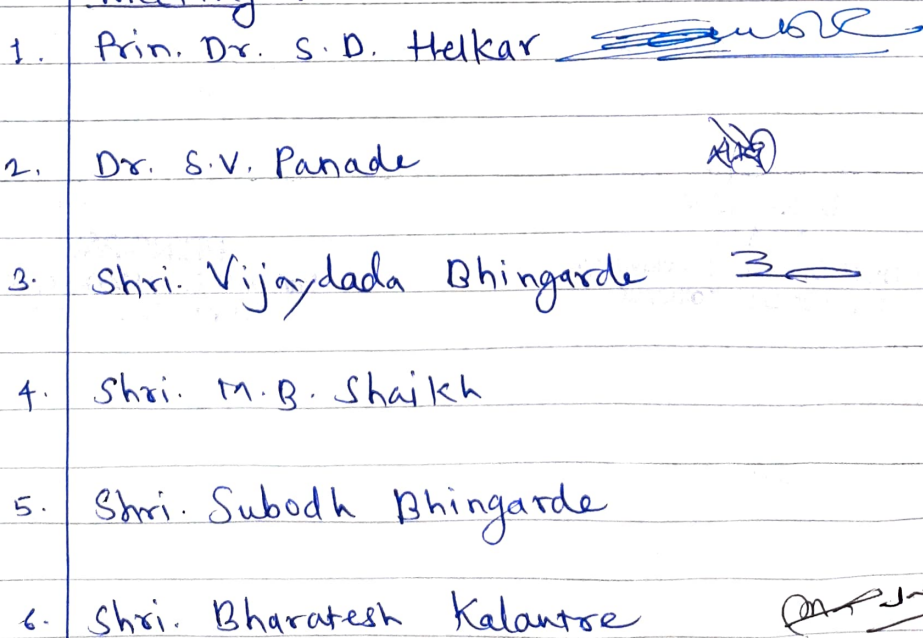 1. Prin. Dr. S. D. Helkar
2. Dr. S.V. Panade
3. Shri. Vijaydada Bhingarde
4. Shri. M.B. Shaikh
5. Shri. Subodh Bhingarde
6. Shri. Bharatesh Kalantre